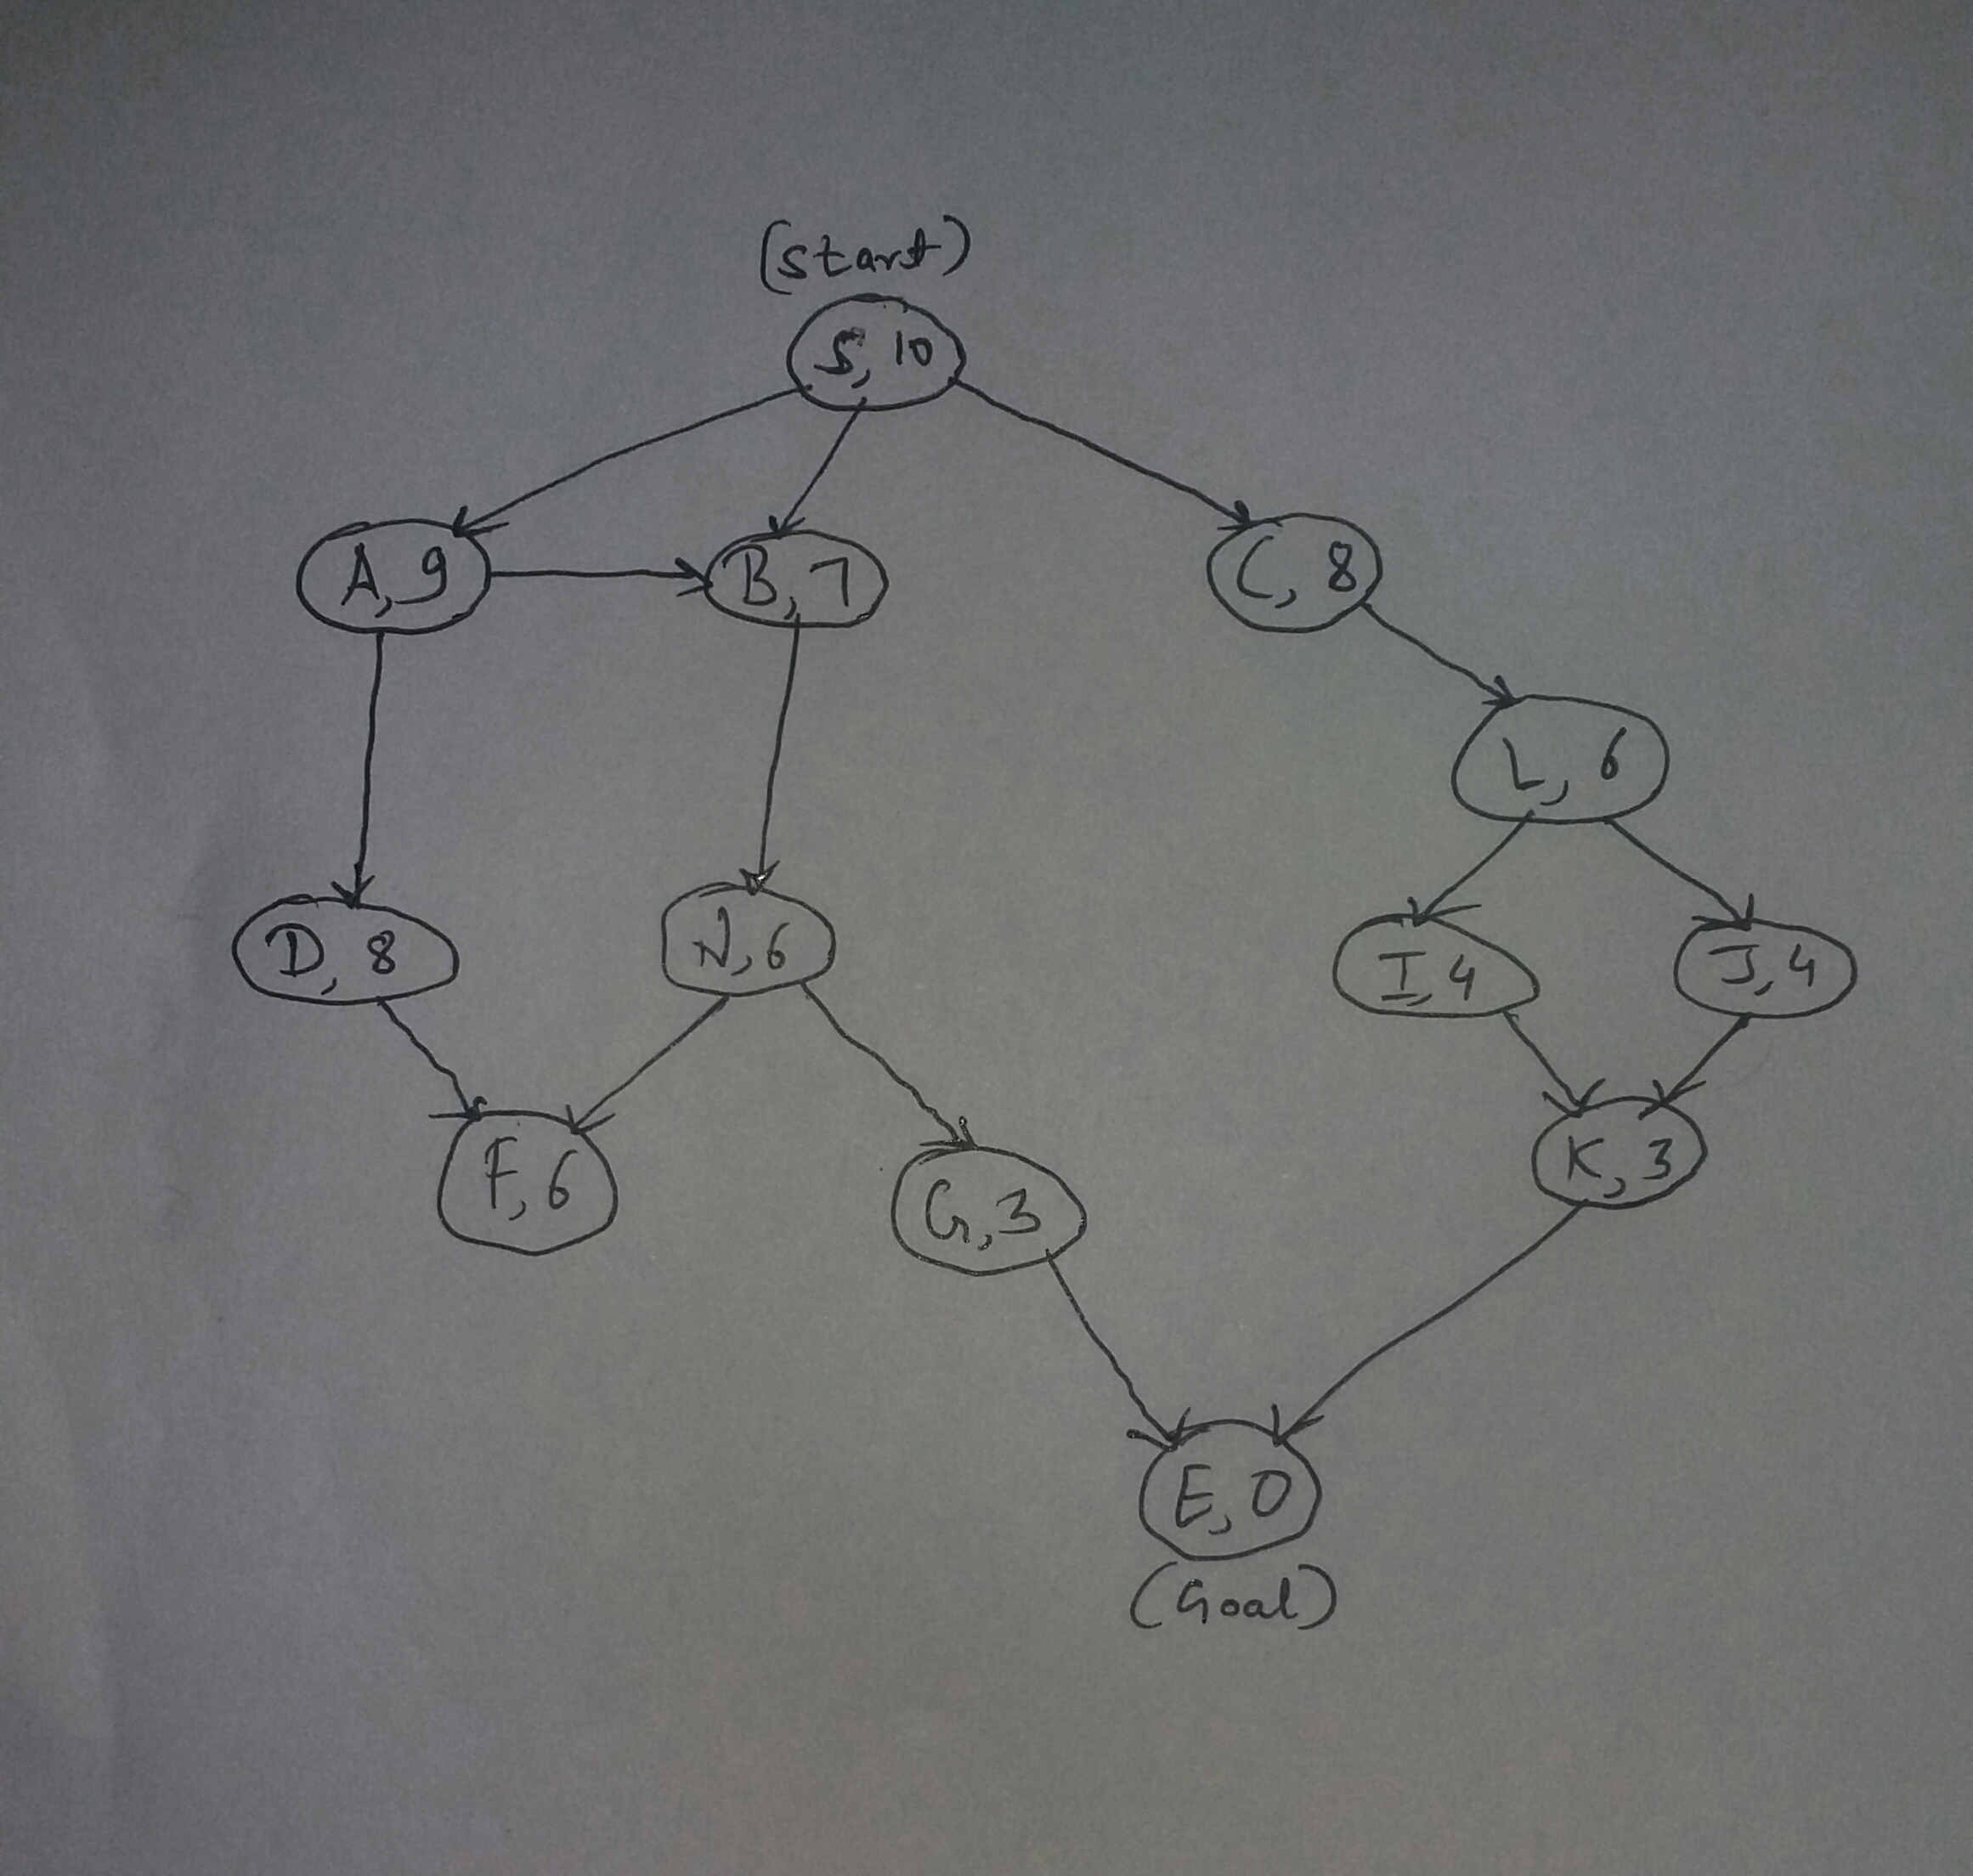 (start)
S, 10
A, 9
B, 7
C, 8
L, 6
D, 8
N, 6
I, 4
J, 4
F, 6
G, 3
K, 3
E, 0
(Goal)